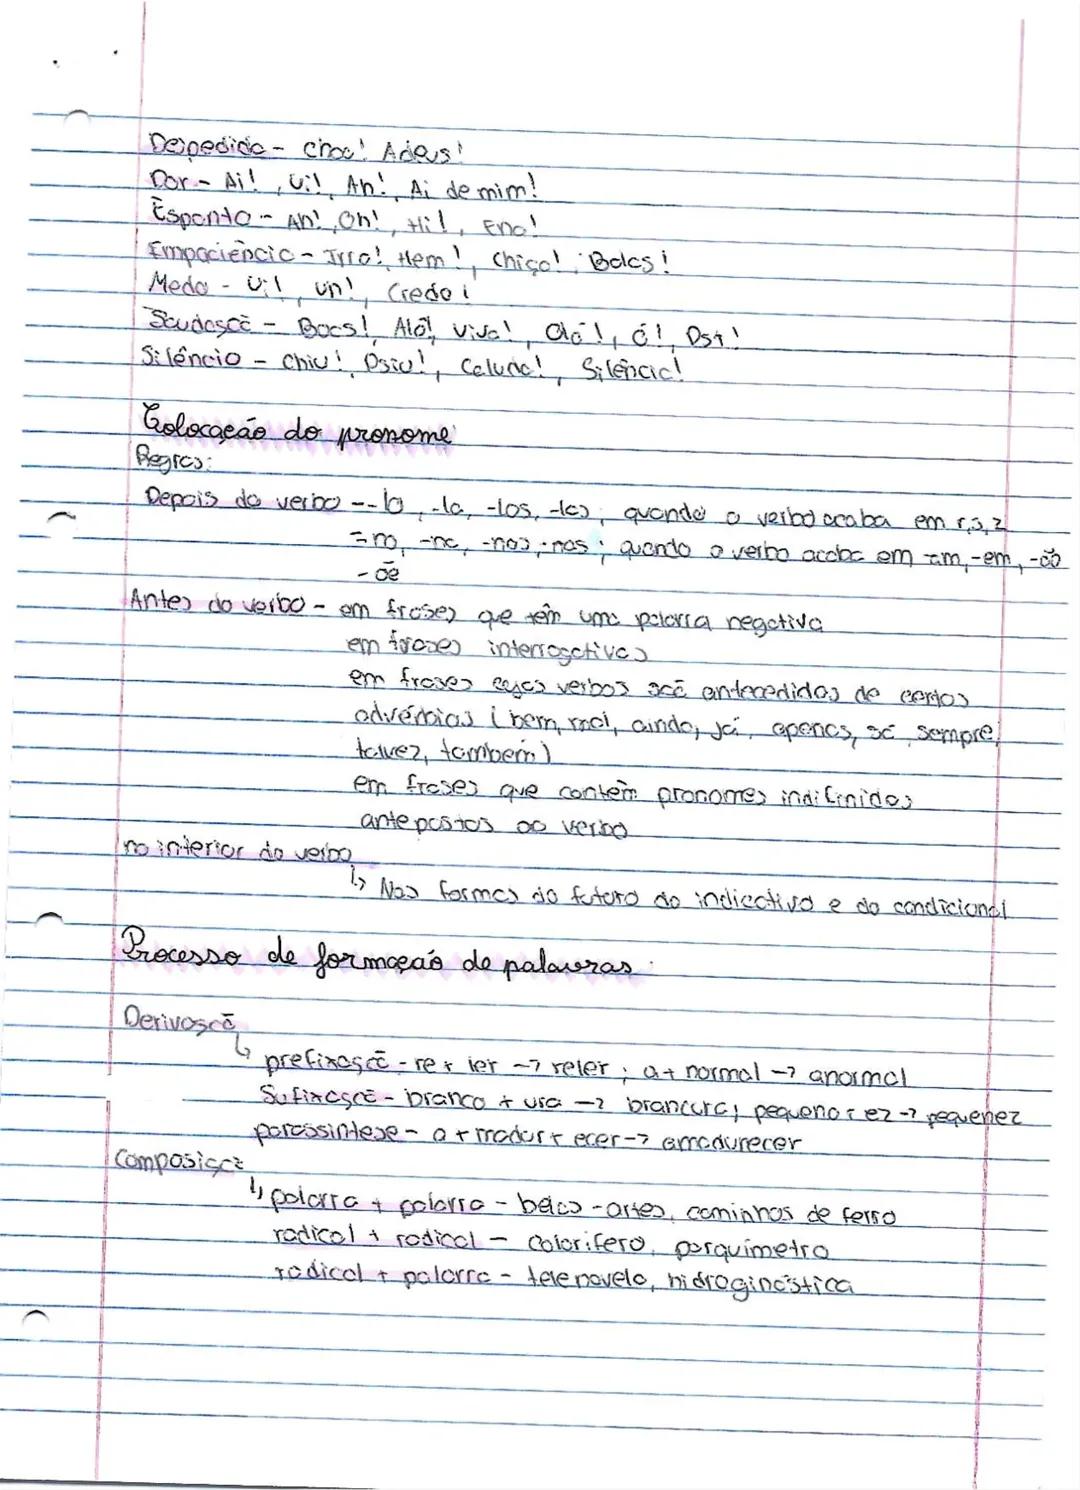 Despedida - chao! Adeus!
Dor - Ai!, Ui!, Ah!, Ai de mim!
Espanto - Ah!, Oh!, Hi!, Ena!
Impaciência - Irra!, Hem!, Chiça!, Bolas!
Medo - Ui!, Uh!, Credo!
Saudação - Boas!, Alô!, Viva!, Olá!, ó!, Pst!
Silêncio - Chiu!, Psiu!, Caluda!, Silêncio!
Colocação do pronome
Regras:
Depois do verbo - -lo, -la, -los, -las; quando o verbo acaba em r, s, z
-no, -na, -nos, -nas; quando o verbo acaba em -am, -em, -ão
-õe
Antes do verbo - em frases que têm uma palavra negativa
em frases interrogativas
em frases cujos verbos são antecedidos de certos
advérbios (bem, mal, ainda, já, apenas, só, sempre,
talvez, também)
em frases que contêm pronomes indifinidos
antepostos ao verbo
no interior do verbo
↳ Nas formas do futuro do indicativo e do condicional
Processo de formação de palavras
Derivação
↳ prefixação - re + ler → reler; a + normal → anormal
Sufixação - branco + ura → brancura; pequeno + ez → pequenez
parassíntese - a + madur + ecer → amadurecer
Composição
↳ palavra + palavra - belas-artes, caminhos de ferro
radical + radical - calorífero, parquímetro
radical + palavra - telenovela, hidroginástica